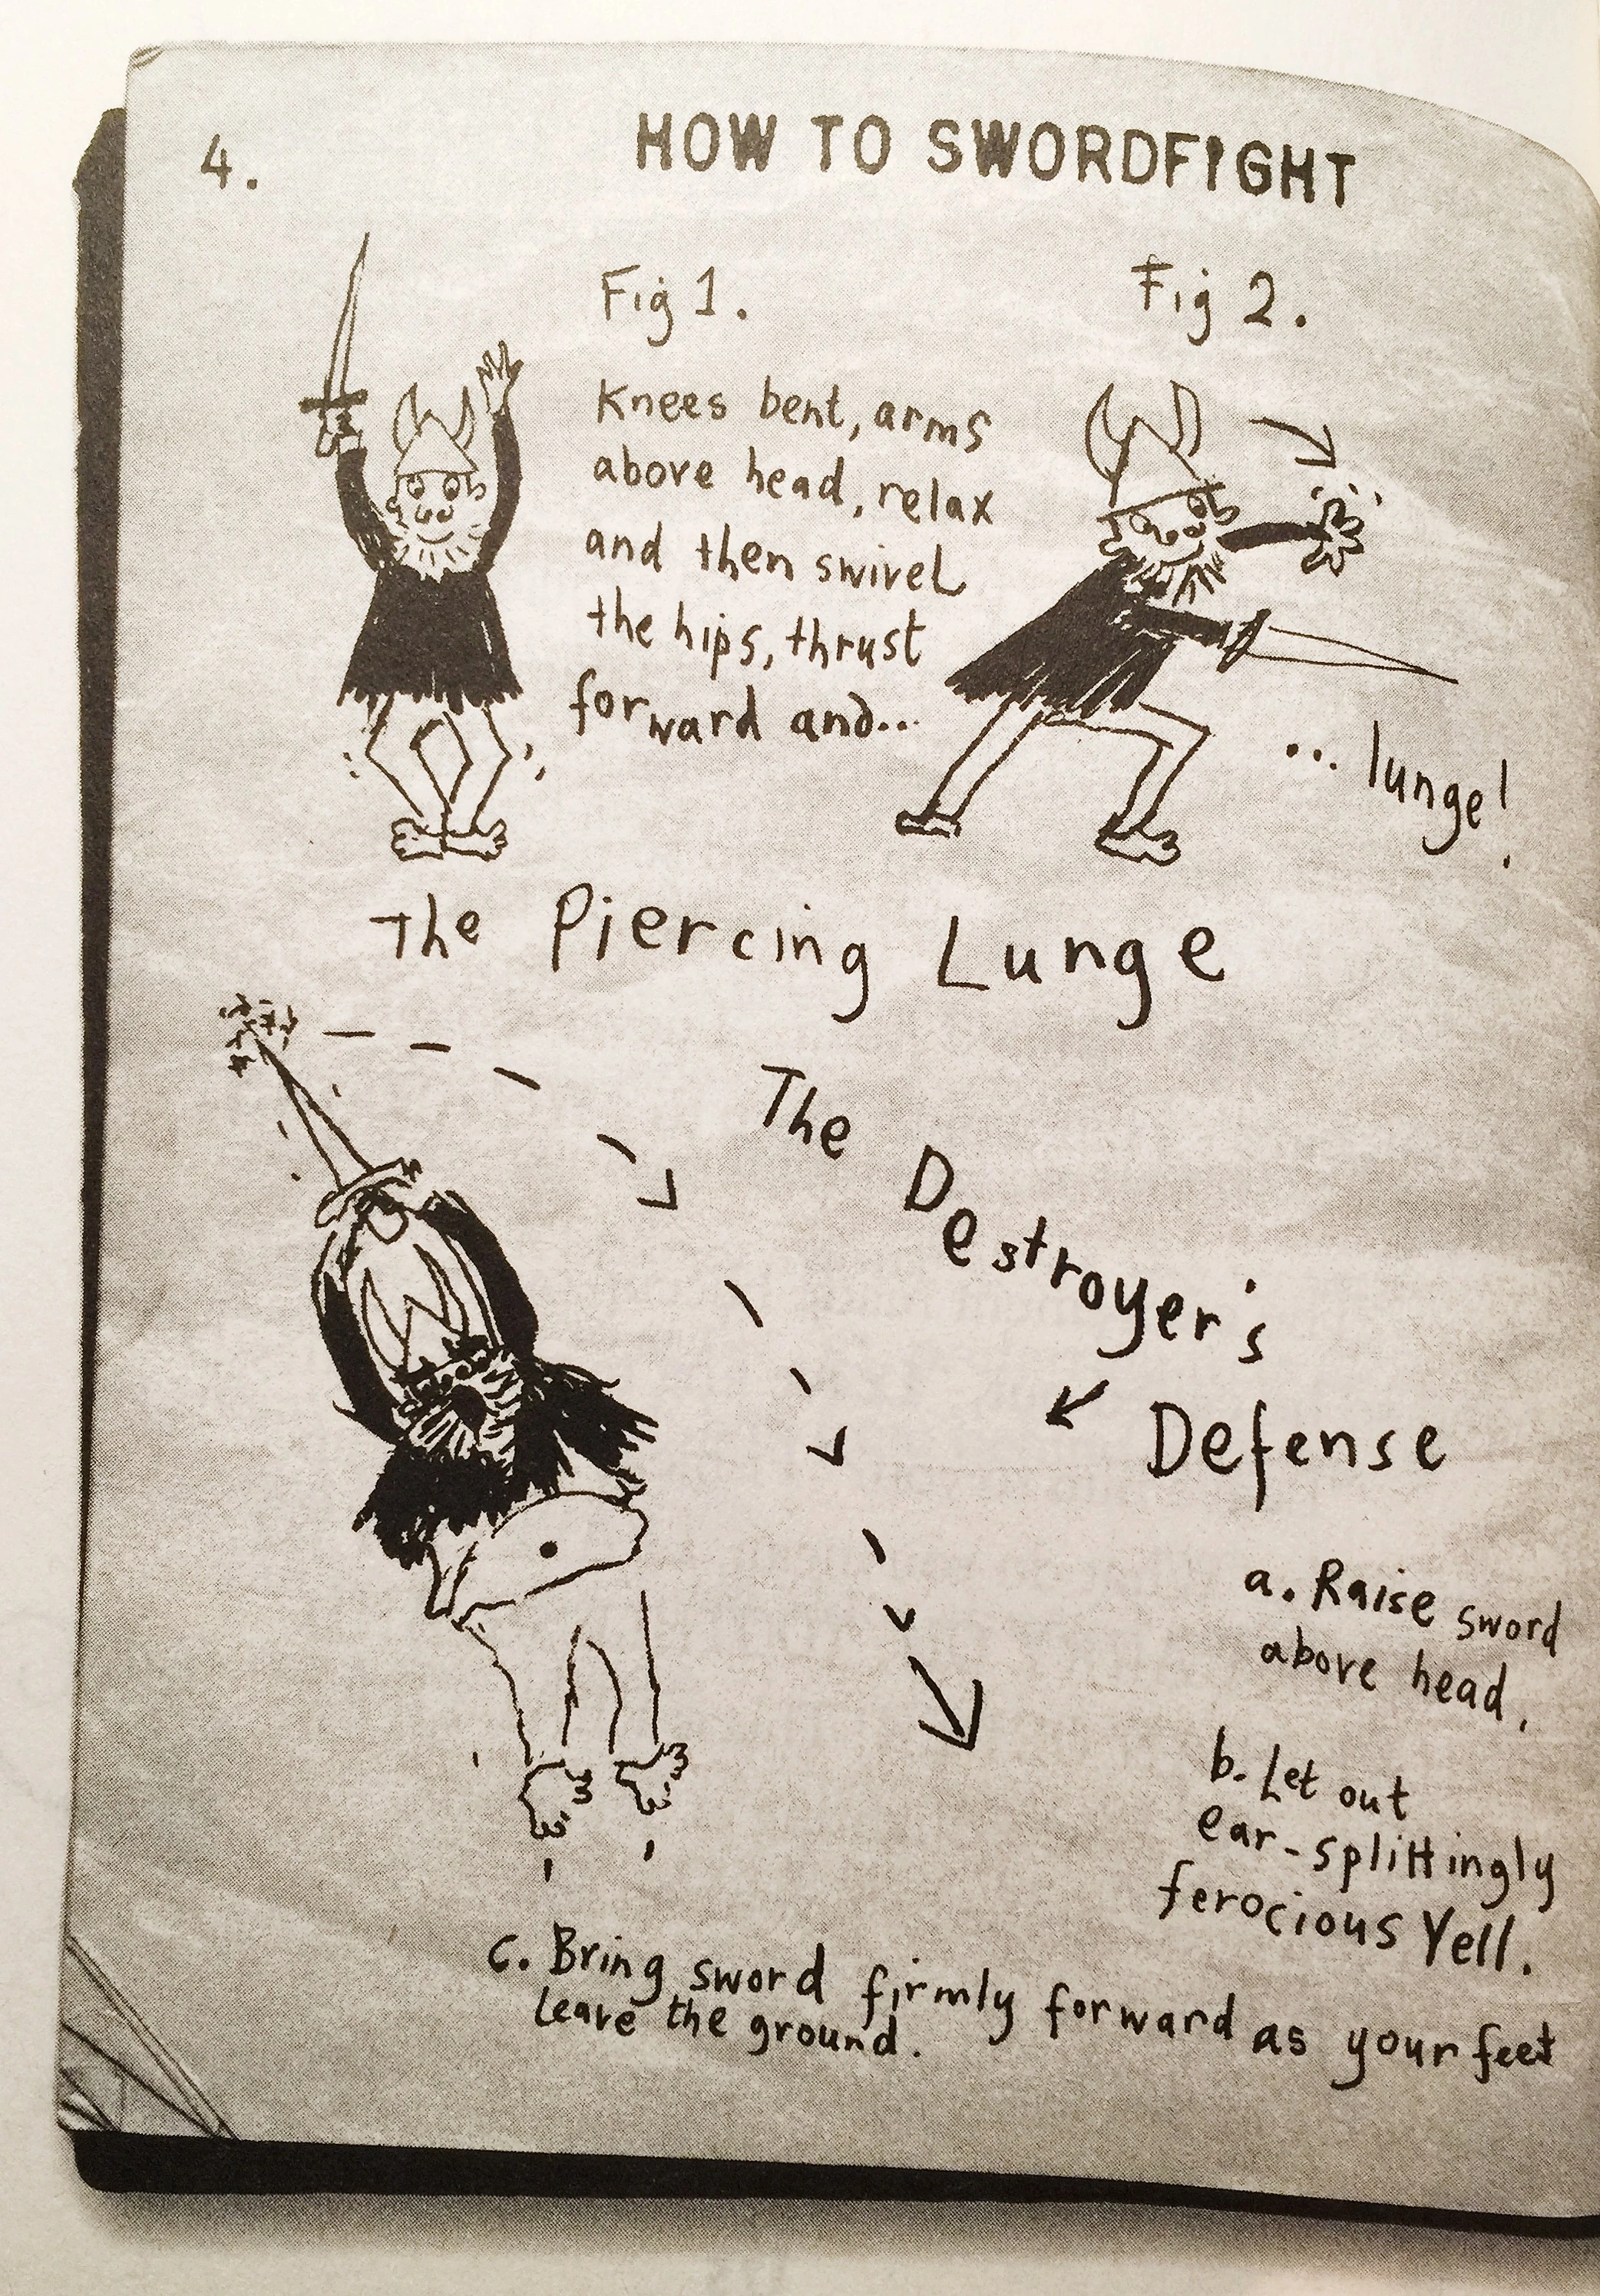 4.
HOW TO SWORDFIGHT
Fig 1.
Knees bent, arms
above head, relax
and then swivel
the hips, thrust
forward and...
Fig 2.
... lunge!
The Piercing Lunge
The Destroyer's
Defense
a. Raise sword
above head.
b. Let out
ear-splittingly
ferocious Yell.
c. Bring sword firmly forward as your feet
leave the ground.